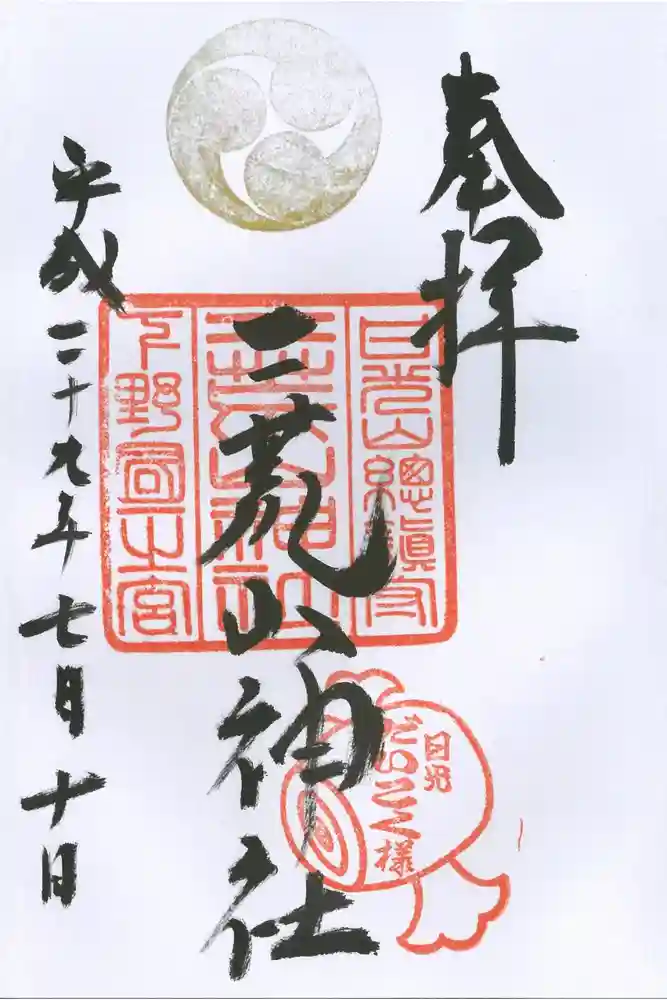 奉拝
日光山總鎮守
二荒山神社
二荒山神社
下野國一之宮
日光
だいこく様
平成二十九年七月十日